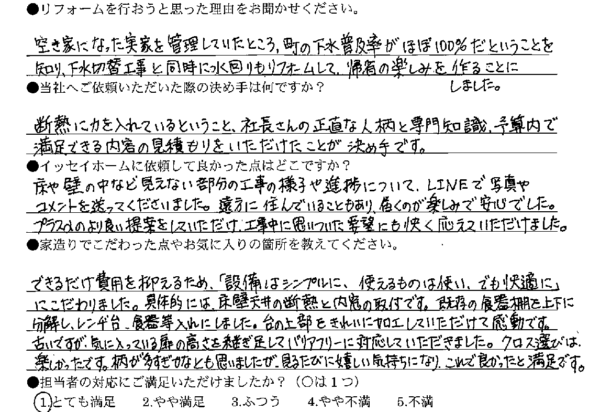 ●リフォームを行おうと思った理由をお聞かせください。
空き家になった実家を管理していたところ、町の下水普及率がほぼ100%だということを
知り、下水切替工事と同時に水回りもリフォームして、帰省の楽しみを作ることに
しました。
●当社へご依頼いただいた際の決め手は何ですか？
断熱に力を入れているということ、社長さんの正直な人柄と専門知識、予算内で
満足できる内容の見積もりをいただけたことが決め手です。
●イッセイホームに依頼して良かった点はどこですか？
床や壁の中など見えない部分の工事の様子や進捗について、LINEで写真や
コメントを送ってくださいました。遠方に住んでいることもあり、届くのが楽しみで安心でした。
プラスαのより良い提案をしていただけ、工事中に思いついた要望にも快く応えていただけました。
●家造りでこだわった点やお気に入りの箇所を教えてください。
できるだけ費用を抑えるため、「設備はシンプルに、使えるものは使い、でも快適に」
にこだわりました。具体的には、床壁天井の断熱と内窓の取付です。既存の食器棚を上下に
分解し、レンジ台、食器等入れにしました。台の上部をきれいに加工していただけて感動です。
古いですが、気に入っている扉の高さを継ぎ足してバリアフリーに対応していただきました。クロス選びは、
楽しかったです。柄が多すぎかなとも思いましたが、見るたびに嬉しい気持ちになり、これで良かったと満足です。
●担当者の対応にご満足いただけましたか？（○は１つ）
1.とても満足 2.やや満足 3.ふつう 4.やや不満 5.不満